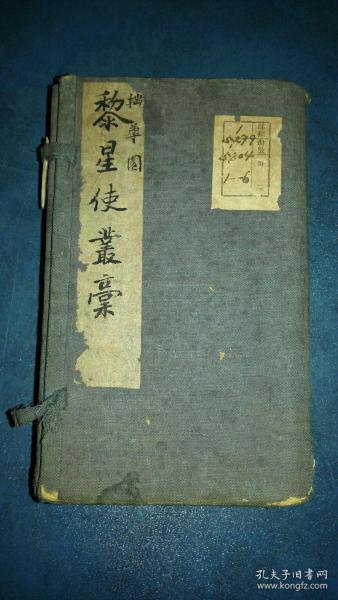 拙尊園
黎星使叢稾
1
1-6
孔夫子旧书网
www.kongfz.com